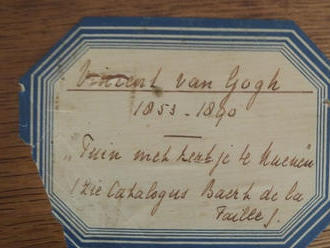 Vincent van Gogh
1853 - 1890
„Tuin met kerkje te Nuenen
(zie Catalogus Baert de la
Faille).